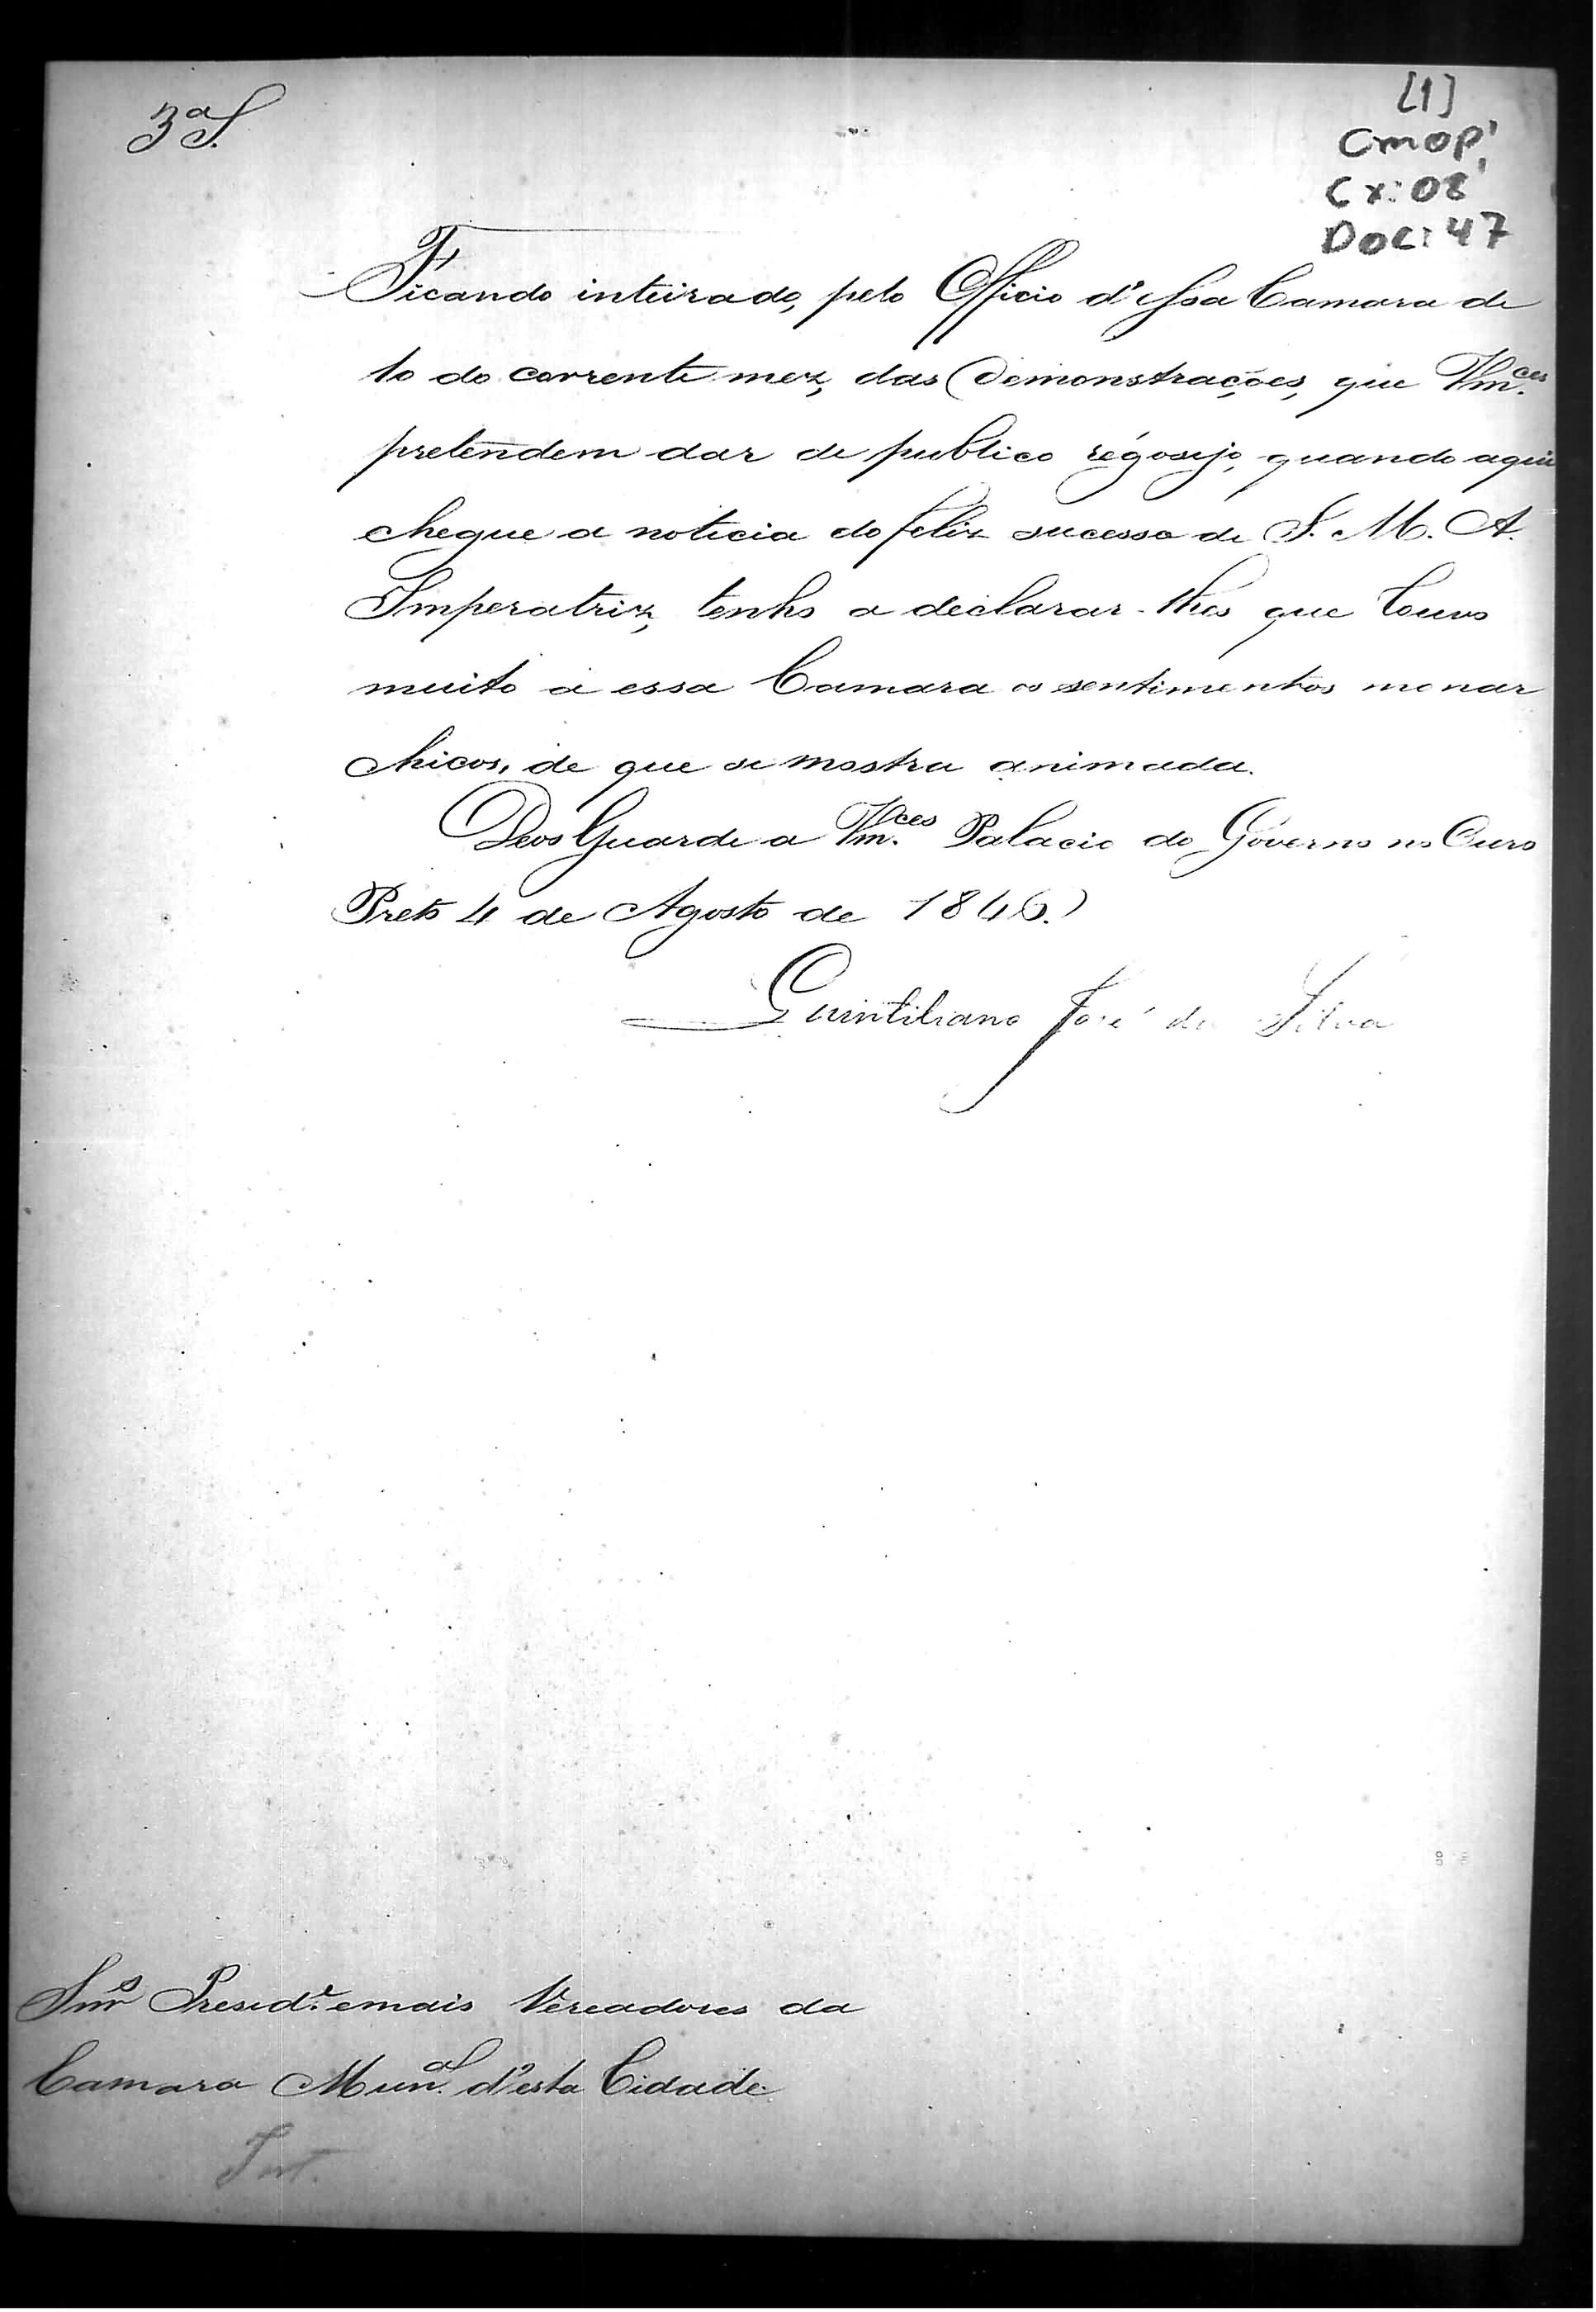 3ª S.
[1]
CMOP
Cx: 08
Doc: 47
Ficando inteirado, pelo Officio d'essa Camara de
1o do corrente mez, das Demonstrações, que Vm.ces
pretendem dar de publico regosijo, quando aqui
chegue a noticia do feliz sucesso de S. M. A.
Imperatriz, tenho a declarar-lhes que louvo
muito a essa Camara os sentimentos monar
chicos, de que se mostra animada.
Deos Guarde a Vm.ces Palacio do Governo no Ouro
Preto 4 de Agosto de 1846.
Quintiliano José da Silva
Snrs Presid.e e mais Vereadores da
Camara Mun.al d'esta Cidade.